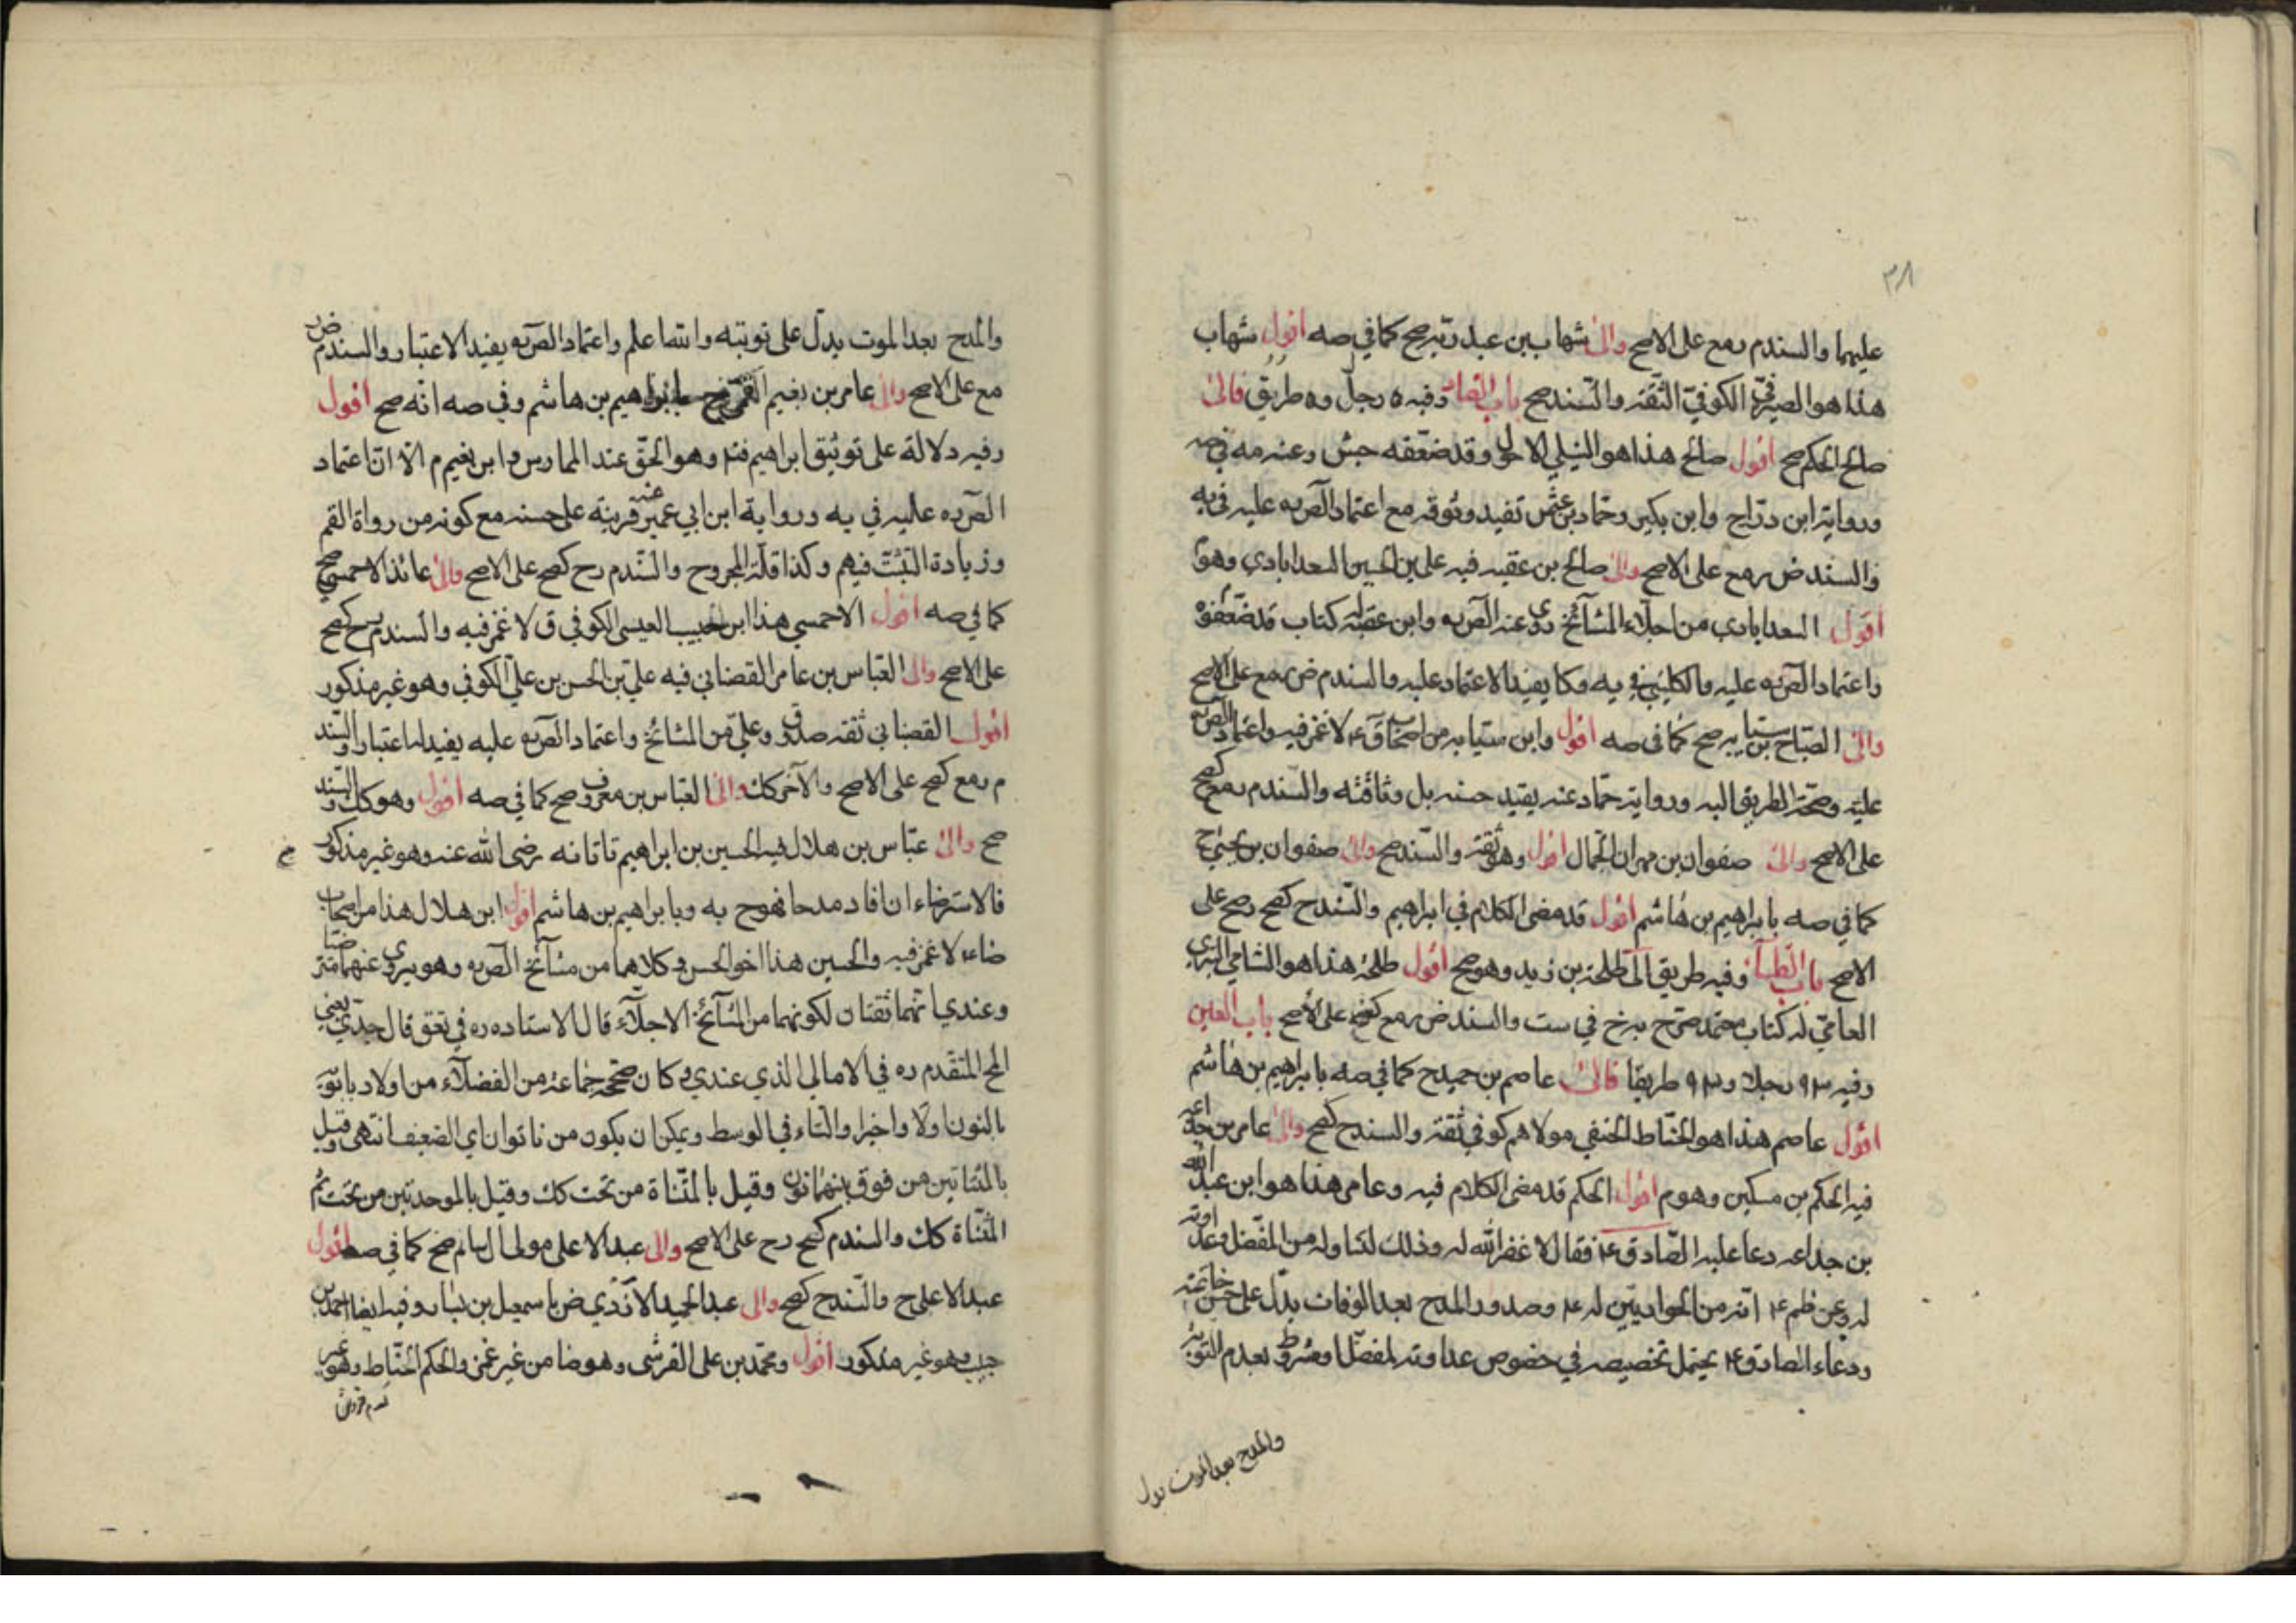 ٣٨
عليهما والسندم رمع على الاصح والى شهاب بن عبد ربه صح كما في صه اقول شهاب
هذا هو الصيرفي الكوفي الثقة والسند صح باب الصاد وفيه ٥ رجل و٥ طريق فالى
صالح الحكم صح اقول صالح هذا هو النيلي الاحول وقد ضعفه جش وعنه مه في صه
ورواية ابن دراج وابن بكير وحماد بن عثمن تفيد وثوقه مع اعتماد الصر به عليه في به
والسند ض رمع على الاصح والى صالح بن عقبه فيه على بن الحسين السعدابادي وهو م
اقول السعدابادي من اجلاء المشائخ روى عنه الصر به وابن عقبة له كتاب قد ضعفوه
واعتماد الصر به عليه والكليني في يه وكا يفيد الاعتماد عليه والسندم ض رمع على الاصح
والى الصباح بن سيابه صح كما في صه اقول وابن سيابه من اصحاب ق ع لا غمز فيه واعتماد الصر به
عليه وصحة الطريق اليه ورواية حماد عنه يفيد حسنه بل وثاقته والسندم رمع كصح
على الاصح والى صفوان بن مهران الجمال اقول وهو ثقة والسند صح والى صفوان بن يحيى ح
كما في صه بابراهيم بن هاشم اقول قد مضى الكلام في ابراهيم والسندح كصح رصح على
الاصح باب الطاء وفيه طريق الى طلحة بن زيد وهو صح اقول طلحة هذا هو الشامي البتري
العامي له كتاب معتمد صرح به خ في ست والسند ض رمع كصح على الاصح باب العين
وفيه ٩٣ رجلا و٩٣ طريقا فالى عاصم بن حميد ح كما في صه بابراهيم بن هاشم
اقول عاصم هذا هو الحناط الحنفي مولاهم كوفي ثقة والسندح كصح والى عامر بن جذاعه
فيه الحكم بن مسكين وهو م اقول الحكم قد مضى الكلام فيه وعامر هذا هو ابن عبد الله
بن جذاعه دعا عليه الصادق ع فقال لا غفر الله له وذلك لتناوله من المفضل وعداوته
له وعن ظم ع انه من الحواريين له ع وصدور المدح بعد الوفات يدل على حسن خاتمته
ودعاء الصادق ع يحتمل تخصيصه في خصوص عداوته لمفضل او مشروط بعدم التوبة
والمدح بعد الموت يدل
والمدح بعد الموت يدل على توبته وانتها علم واعتماد الصر به يفيد الاعتبار والسندم ض ر
مع على الاصح والى عامر بن نعيم القمي ح بابراهيم بن هاشم وفي صه انه صح اقول
وفيه دلالة على توثيق ابراهيم فتد وهو الحق عند الممارس وابن نعيم م الا ان اعتماد
الصر ده عليه في به ورواية ابن ابي عمير عنه قرينة على حسنه مع كونه من رواة القم
وزيادة التثبت فيهم وكذا قلة المجروح والسندم رح كصح على الاصح والى عائذ الاحمسي صح
كما في صه اقول الاحمسي هذا ابن حبيب العبسى الكوفي ق لا غمز فيه والسندم رح كصح
على الاصح والى العباس بن عامر القصباني فيه علي بن الحسن بن علي الكوفي وهو غير مذكور
اقول القصباني ثقة صدوق وعلي من المشائخ واعتماد الصر به عليه يفيد اعتباره والسند
م رمع كصح على الاصح والآخر كك والى العباس بن معروف صح كما في صه اقول وهو كك والسند
صح والى عباس بن هلال فيه الحسين بن ابراهيم ناتانه رضى الله عنه وهو غير مذكور م
فالاسترضاء ان افاد مدحا فهو ح به وبابراهيم بن هاشم اقول ابن هلال هذا من اصحاب
ضاء لا غمز فيه والحسين هذا اخو الحسن وكلاهما من مشائخ الصر به وهو يروى عنهما مترضيا
وعندي انهما ثقتان لكونهما من المشائخ الاجلاء قال الاستاد ده ره في تعق قال جدي يعني
المج المتقدم ره في الامالي الذي عندي وكان صححه جماعة من الفضلاء من اولاد بابويه
بالنون اولا واخيرا والتاء في الوسط ويمكن ان يكون من ناتوان اي الضعيف انتهى وقيل
بالمثناتين من فوق بينهما نون وقيل بالمثناة من تحت كك وقيل بالموحدتين من تحت ثم
المثناة كك والسندم كصح رح على الاصح والى عبد الاعلى مولى ال سام صح كما في صه اقول
عبد الاعلى ح والسندح كصح والى عبد الحميد الازدي ض باسمعيل بن بشار وفيه ايضا احمد بن
حبيب وهو غير مذكور اقول ومحمد بن على القرشى وهو ضا من غير غمز والحكم الحناط وهو غير